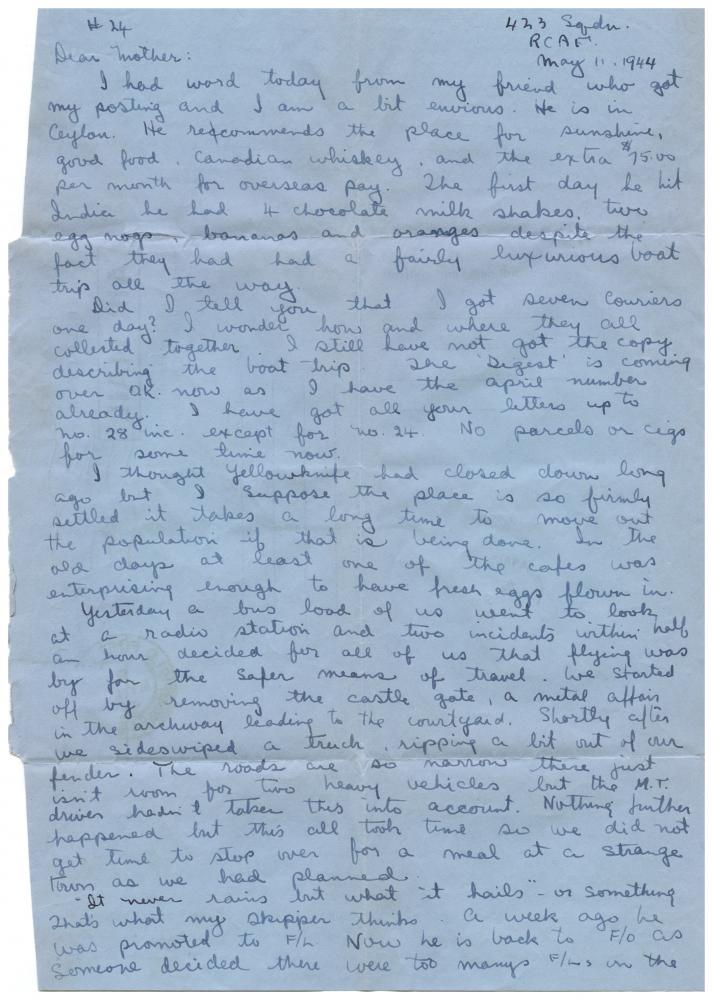 # 24
423 Sqdn.
RCAF.
May 11. 1944
Dear Mother:
I had word today from my friend who got
my posting and I am a bit envious. He is in
Ceylon. He recommends the place for sunshine,
good food, Canadian whiskey, and the extra $75.00
per month for overseas pay. The first day he hit
India he had 4 chocolate milk shakes, two
egg nogs, bananas and oranges despite the
fact they had had a fairly luxurious boat
trip all the way.
Did I tell you that I got seven Couriers
one day? I wonder how and where they all
collected together. I still have not got the copy
describing the boat trip. The 'Digest' is coming
over OK. now as I have the april number
already. I have got all your letters up to
no. 28 inc. except for no. 24. No parcels or cigs
for some time now.
I thought Yellowknife had closed down long
ago but I suppose the place is so firmly
settled it takes a long time to move out
the population if that is being done. In the
old days at least one of the cafes was
enterprising enough to have fresh eggs flown in.
Yesterday a bus load of us went to look
at a radio station and two incidents within half
an hour decided for all of us that flying was
by far the safer means of travel. We started
off by removing the castle gate, a metal affair
in the archway leading to the courtyard. Shortly after
we sideswiped a truck, ripping a bit out of our
fender. The roads are so narrow there just
isn't room for two heavy vehicles but the M.T.
driver hadn't taken this into account. Nothing further
happened but this all took time so we did not
get time to stop over for a meal at a strange
town as we had planned.
"It never rains but what it hails" - or something
That's what my skipper thinks. A week ago he
was promoted to F/L. Now he is back to F/O as
someone decided there were too manys F/Ls in the